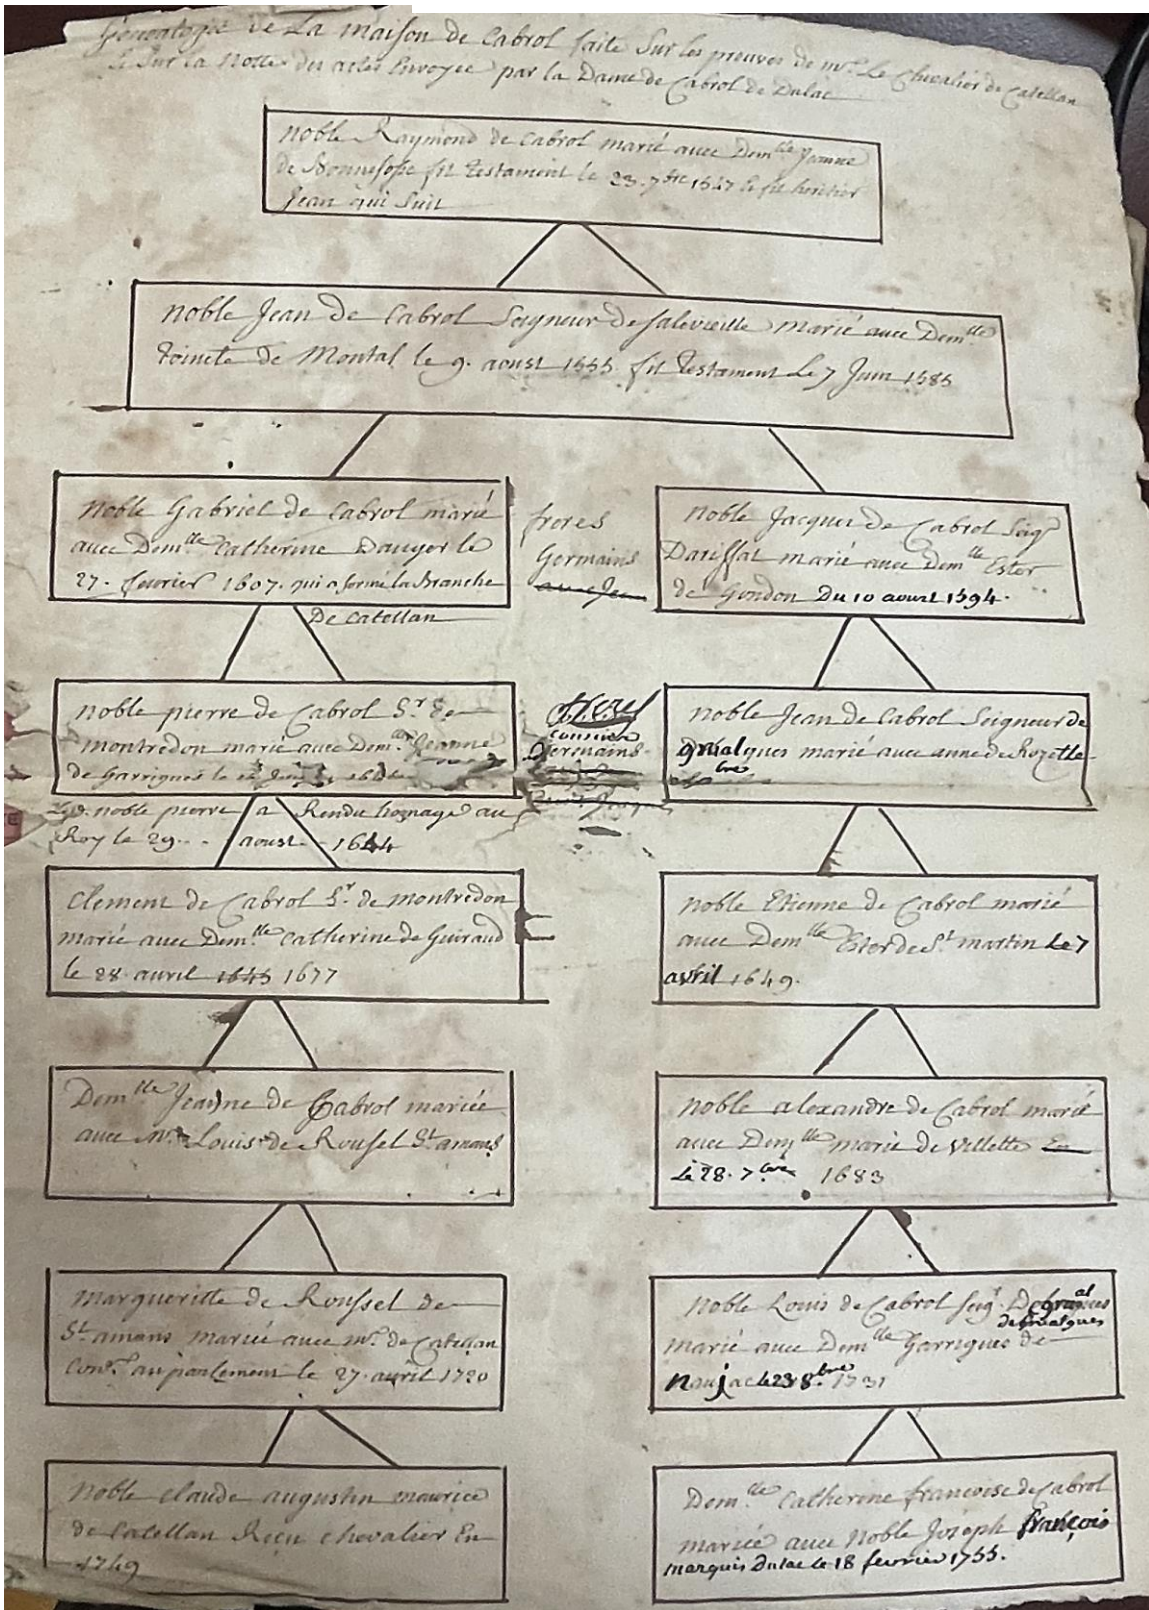 Genealogie de La maison de Cabrol faite Sur les preuves de mr. Le Chevalier de Catellan
& Sur la Notte des actes Envoyée par la Dame de Cabrol de Dulac
noble Raymond de Cabrol marié avec Demlle Jeanne
de fit testament le 23. 7bre 1547 & fit heritier
Jean qui Suit
noble Jean de Cabrol Seigneur de salevieille marié avec Demlle
toinete de Montal le 9. aoust 1555. fit testament Le 7 Juin 1585
noble Gabriel de Cabrol marié
avec Demlle Catherine Dauger le
27. fevrier 1607. qui a formé la Branche
De Catellan
freres
Germains
avec Jean
noble Jacques de Cabrol Seigr
Darissat marié avec Demlle Ester
de Gondon Du 10 aoust 1594.
noble pierre de Cabrol Sr de
montredon marié avec Demlle Jeanne
de Garrigues le
noble pierre a Rendu homage au
Roy le 29. aoust 1644
Germains
noble Jean de Cabrol Seigneur de
marié avec anne de Rozet le
clement de Cabrol Sr. de montredon
marié avec Demlle Catherine de Guiraud
le 28 avril 1645 1677
noble Etienne de Cabrol marié
avec Demlle Ester de St martin Le 7
avril 1649.
Demlle Jeanne de Cabrol mariée
avec Mr. Louis de Roussel St amans
noble alexandre de Cabrol marié
avec Demlle marie de Villette En
Le 28. 7bre 1683
margueritte de Roussel de
St. amans mariée avec mr. de Catellan
Conr. au parlement le 27. avril 1720
Noble Louis de Cabrol Seigr.
marié avec Demlle Garrigues de
Naujac le 23 8bre 1731
Noble claude augustin maurice
de Catellan Reçu chevalier En
1749
Demlle Catherine françoise de Cabrol
mariée avec Noble Joseph françois
marquis Dulac le 18 fevrier 1755.